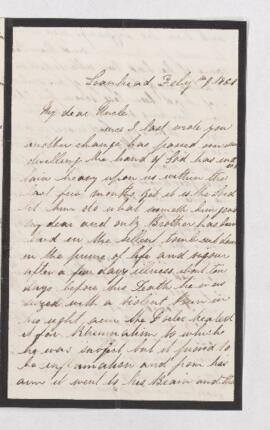 Loanhead Feby 1868
My dear Uncle
since I last wrote you
another change has passed over our
dwelling the hand of God has
lain heavy upon us within the
last few months yet it is the Lord
let him do what seemeth him good
my dear and only Brother has been
laid in the silent tomb cut down
in the prime of life and vigour
after a few days illness about ten
days before his Death he was
seized with a violent Pain in
his right arm the Doctor treated
it for Rheumatism to which
he was subject but it proved to
be inflamation and from his
arm it went to his Brain and the